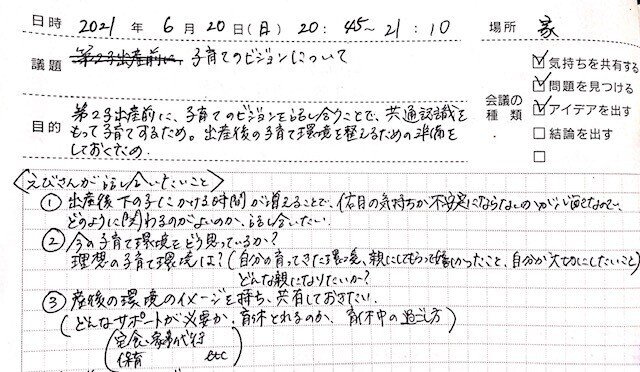 日時 2021 年 6 月 20 日(日) 20:45〜21:10 場所 家
議題 第2子出産前に、子育てのビジョンについて
目的 第2子出産前に、子育てのビジョンを話し合うことで、共通認識を
もって子育てするため。出産後の子育て環境を整えるための準備を
しておくため.
会議の種類
気持ちを共有する
問題を見つける
アイデアを出す
結論を出す
〈えびさんが話し合いたいこと〉
① 出産後下の子にかける時間が増えることで、の気持ちが不安定にならないのかが
どのように関わるのがよいのか、話し合いたい.
② 今の子育て環境をどう思っているか?
理想の子育て環境は?(自分が育ってきた環境、親にしてもらって嬉しかったこと、自分が大切にしたいこと)
どんな親になりたいか?
③ 産後の環境のイメージを持ち、共有しておきたい.
(どんなサポートが必要か.育休とれるのか、育休中の過ごし方)
(定食、家事代行
保育 etc)